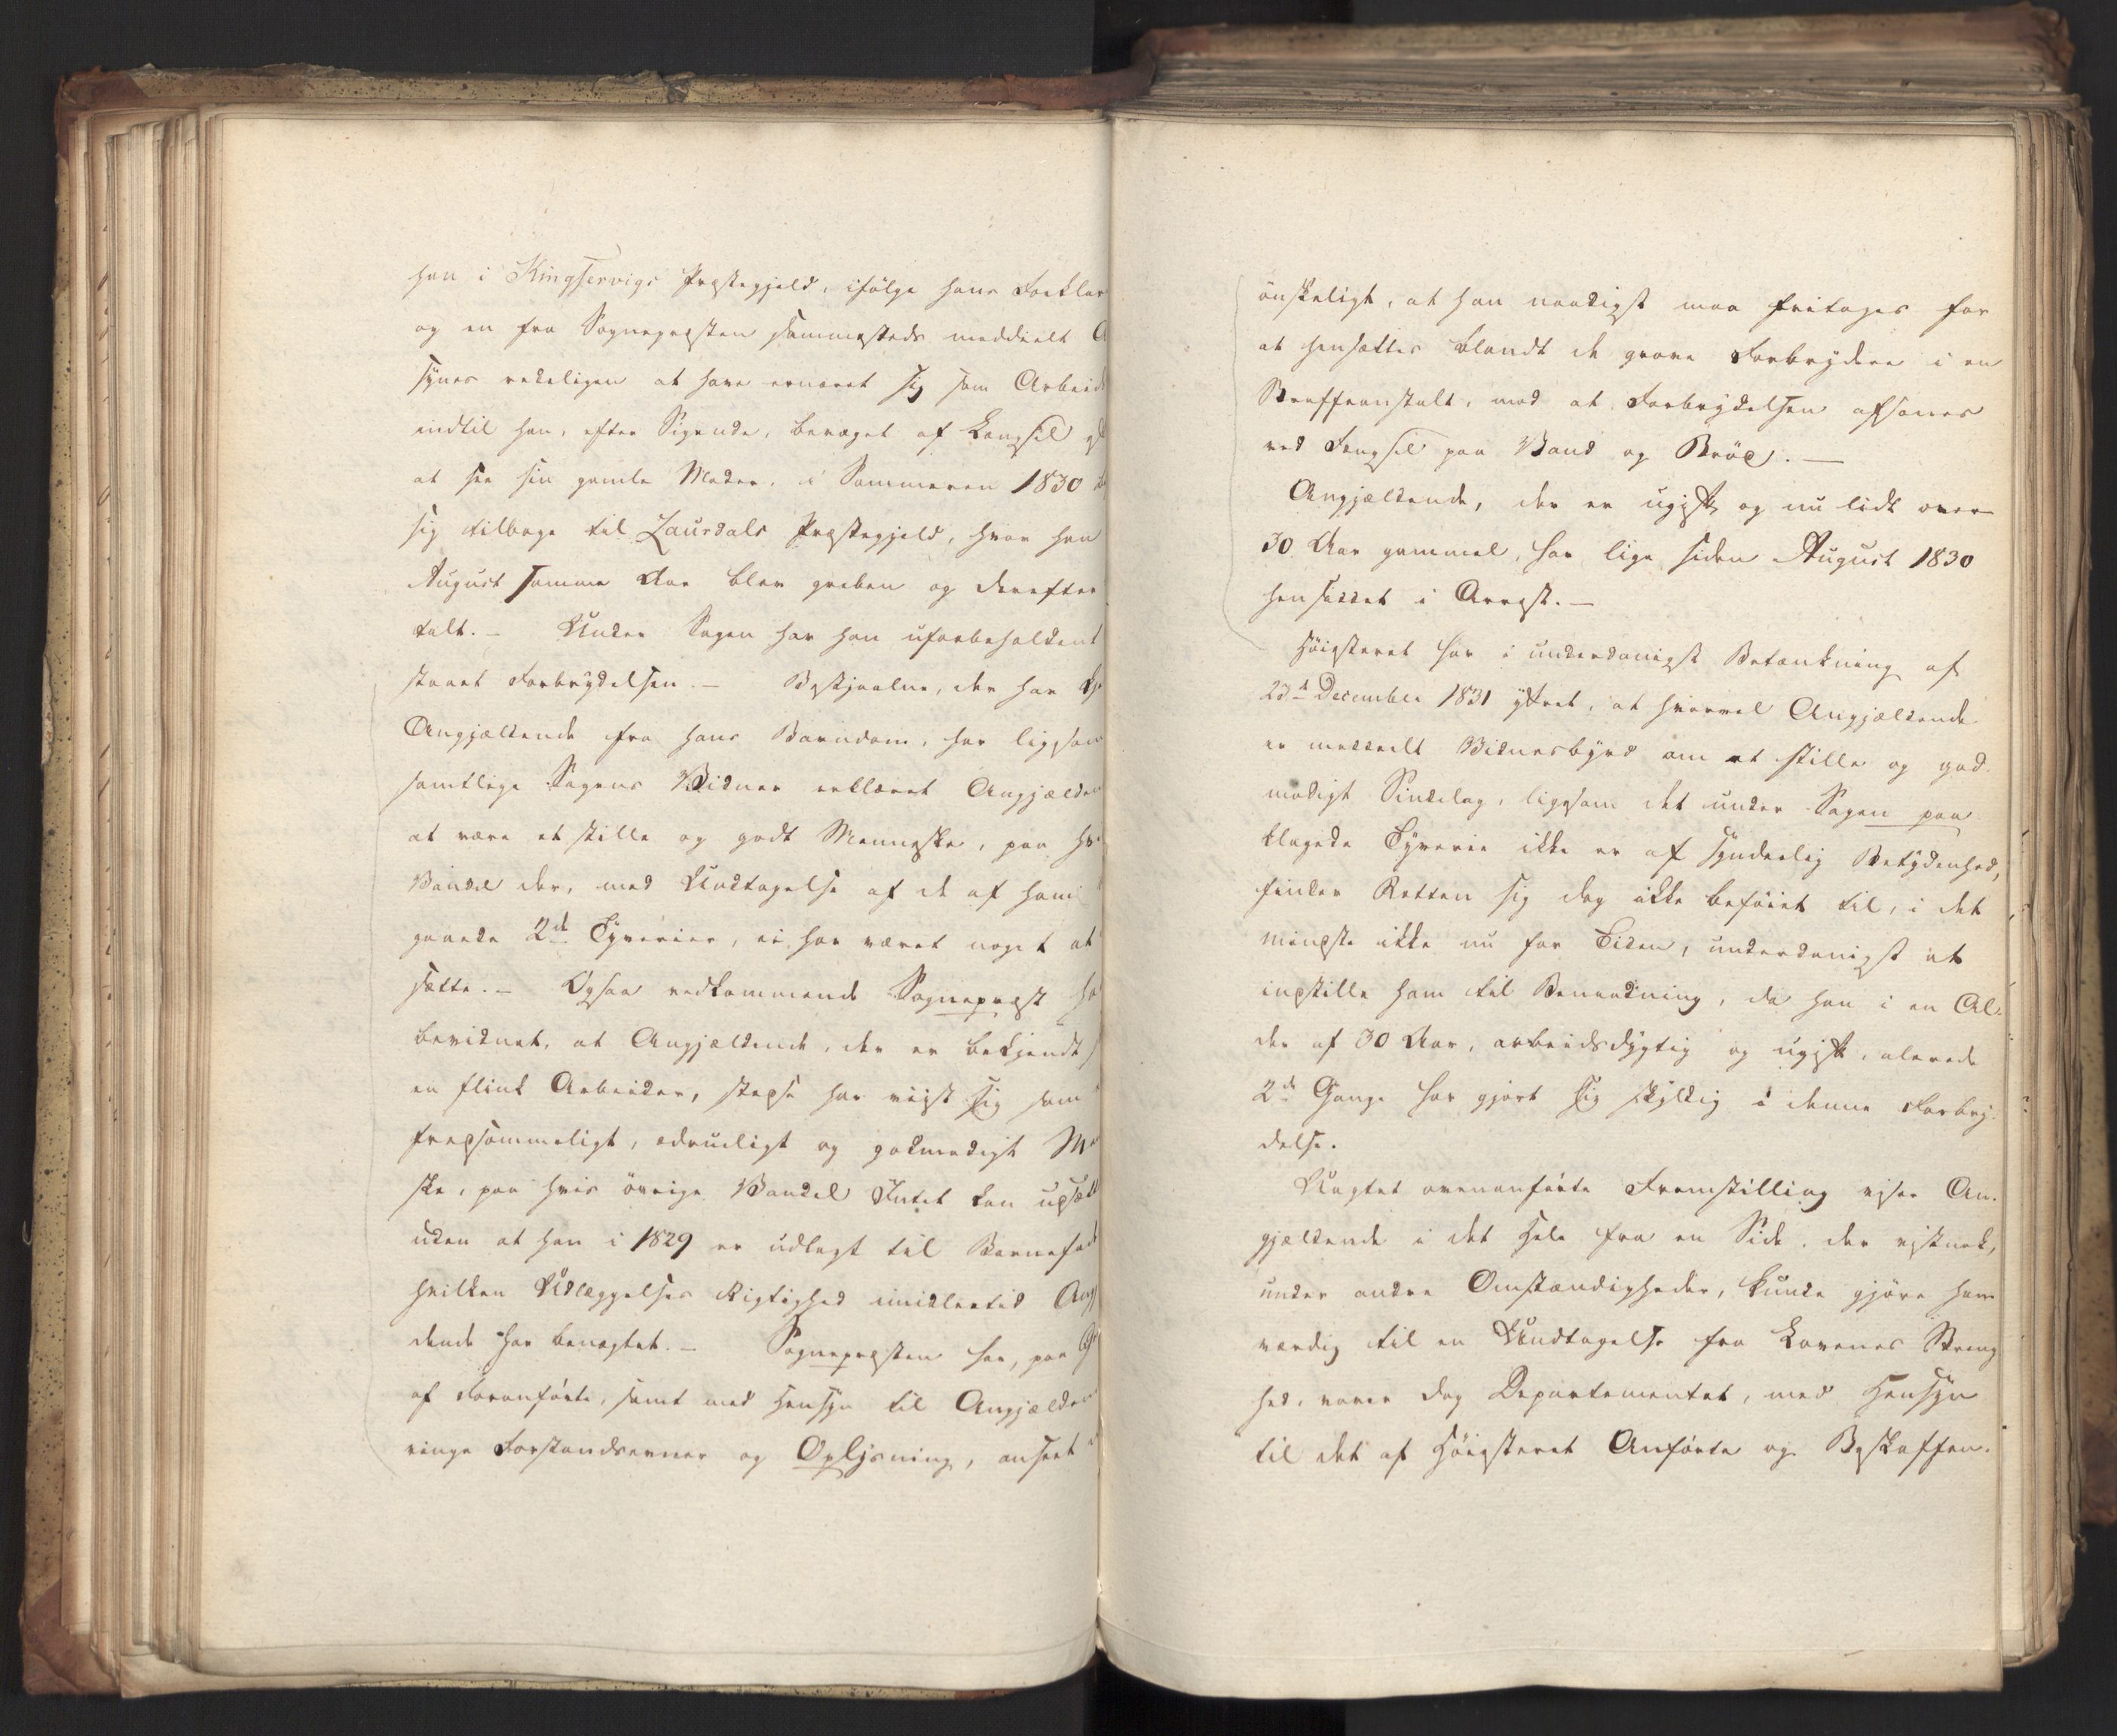 han i Kingservigs Præstegjeld, ifølge hans Forklar
og en fra Sognepræsten sammesteds meddeelt A
synes redeligen at have ernæret sig som Arbeid
indtil han, efter Sigende, bevæget af Længsel
at see sin gamle Moder, i Sommeren 1830
sig tilbage til Laurdals Præstegjeld, hvor han
August samme Aar blev greben og derefter
talt. – Under Sagen har han uforbeholdent
staaet Forbrydelsen. – Bestjaalne, der har kj
Angjældende fra hans Barndom, har ligesom
samtlige Sagens Vidner erklæret Angjælden
at være et stille og godt Menneske, paa hv
Vandel der, med Undtagelse af de af ham
gaaede 2de Tyverier, ei har været noget at
sætte. – Ogsaa vedkommende Sognepræst ha
bevidnet, at Angjældende, der er bekjendt s
en flink Arbeider, stedse har viist sig som
fredsommeligt, ædrueligt og godmodigt Me
ske, paa hvis øvrige Vandel Intet kan udsætt
uden at han i 1829 er udlagt til Barnefad
hvilken Udlæggelses Rigtighed imidlertid Angj
dende har benægtet. – Sognepræsten har, paa G
af Foranførte, samt med Hensyn til Angjælden
ringe Forstandsevner og Oplysning, anseet
ønskeligt, at han naadigst maa fritages for
at hensættes blandt de grove Forbrydere i en
Straffeanstalt, mod at Forbrydelsen afsones
ved Fængsel paa Vand og Brød. –
Angjældende, der er ugift og nu lidt over
30 Aar gammel, har lige siden August 1830
hensiddet i Arrest. –
Høiesteret har i underdanigst Betænkning af
23de December 1831 yttret, at hvorvel Angjældende
er meddeelt Vidnesbyrd om et stille og god-
modigt Sindelag, ligesom det under Sagen paa
klagede Tyverie ikke er af synderlig Betydenhed,
finder Retten sig dog ikke beføiet til, i det
mindste ikke nu for Tiden, underdanigst at
indstille ham til Benaadning, da han i en Al-
der af 30 Aar, arbeidsdygtig og ugift, alerede
2de Gange har gjort sig skyldig i denne Forbry-
delse.
Uagtet ovenanførte Fremstilling viser An-
gjældende i det Hele fra en Side, der vistnok,
under andre Omstændigheder, kunde gjøre ham
værdig til en Undtagelse fra Lovenes Streng
hed, vover dog Departementet, med Hensyn
til det af Høiesteret Anførte og Beskaffen-